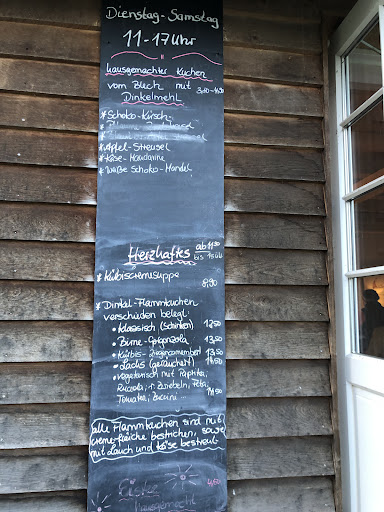 Dienstag - Samstag
11 - 17 Uhr
hausgemachter Kuchen
vom Blech mit
Dinkelmehl
* Schoko - Kirsch
* Apfel - Streusel
* Käse - Mandarine
* Weiße Schoko - Mandel
Herzhaftes ab 11³⁰
bis 15 Uhr
* Kürbiscremesuppe
8,90
* Dinkel - Flammkuchen
verschieden belegt:
• klassisch (Schinken) 12,50
• Birne - Gorgonzola 13,50
• Kürbis - Ziegencamembert 13,50
• Lachs (geräuchert) 14,50
• vegetarisch mit Paprika,
Ruccola, r. Zwiebeln, Feta,
Tomaten, Zucchini 14,50
alle Flammkuchen sind mit
Creme-fraîche bestrichen, sowie
mit Lauch und Käse bestreut
Eistee
hausgemacht 4,60